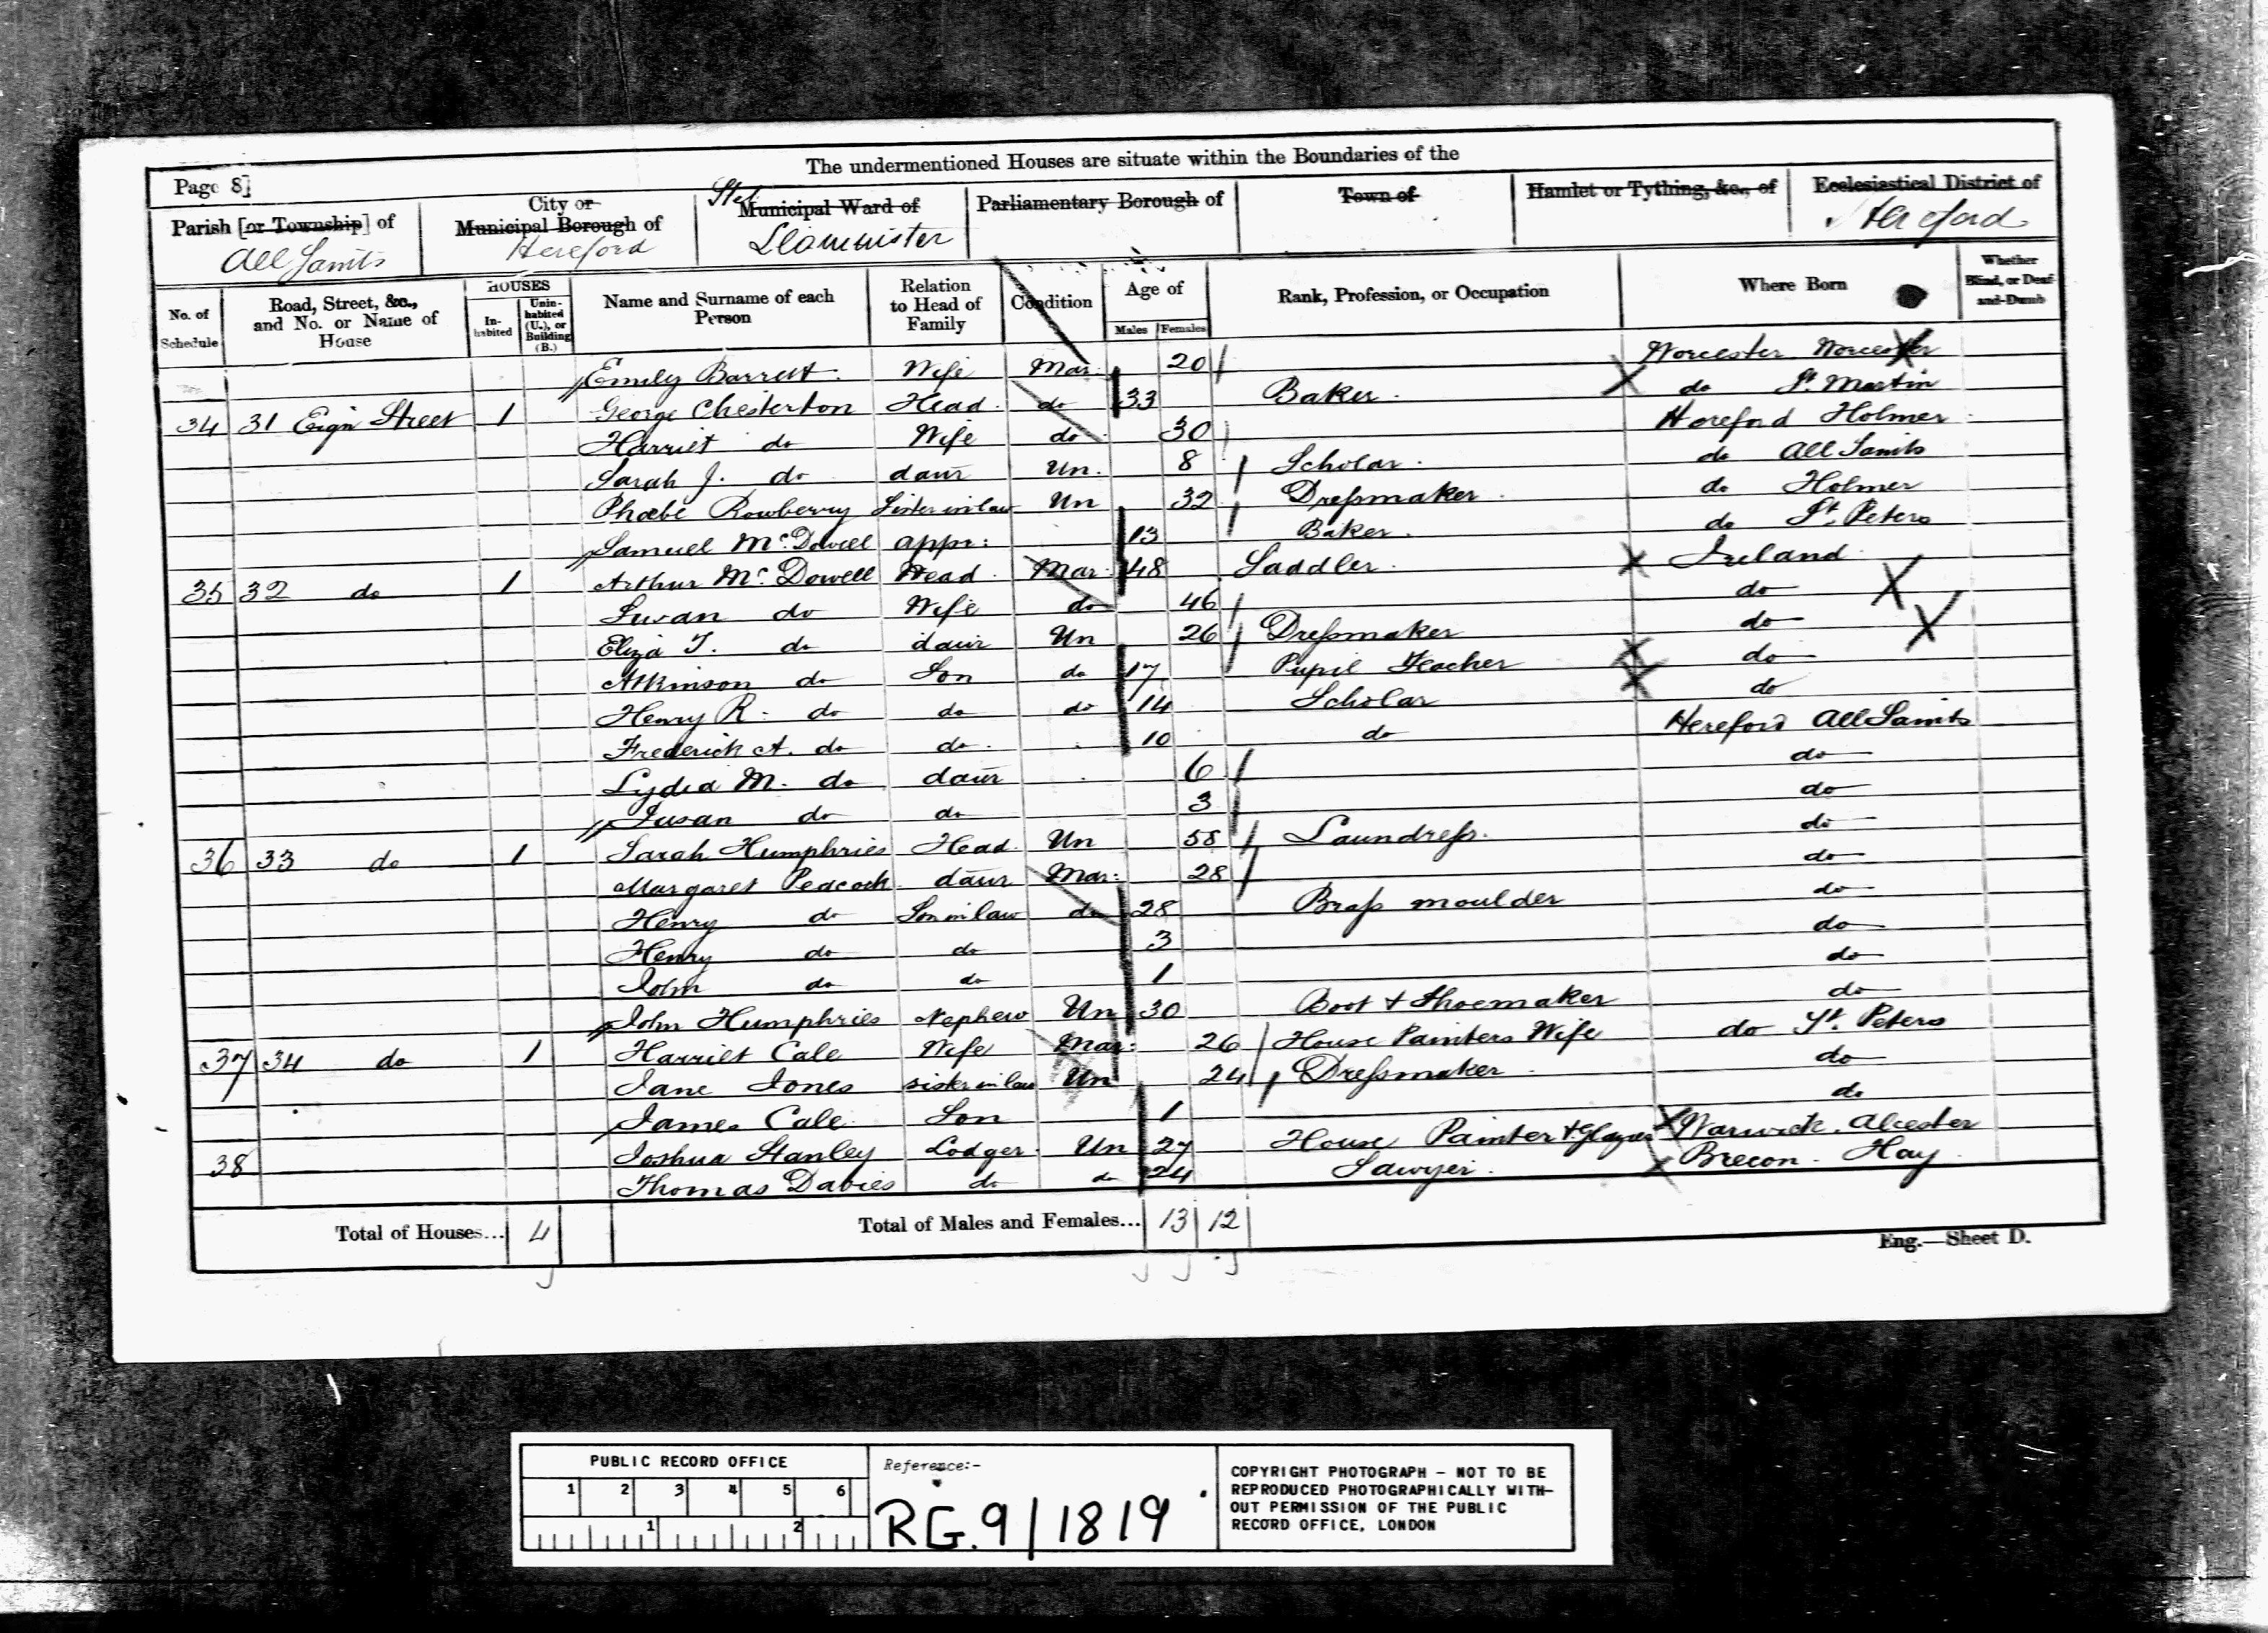 The undermentioned Houses are situate within the Boundaries of the
Page 8]
Parish [or Township] of All Saints
City or Municipal Borough of Hereford
Municipal Ward of
Parliamentary Borough of
Town of
Hamlet or Tything, &c., of
Ecclesiastical District of Hereford
No. of Schedule | Road, Street, &c., and No. or Name of House | HOUSES Inhabited | Uninhabited (U.), or Building (B.) | Name and Surname of each Person | Relation to Head of Family | Condition | Age of Males | Females | Rank, Profession, or Occupation | Where Born | Whether Blind, or Deaf-and-Dumb
Emily Barrett Wife Mar. 20 Worcester Worcester
34 31 Eign Street 1 George Chesterton Head. do 33 Baker. do St. Martin
Harriet do Wife do 30 Hereford Holmer
Sarah J. do daur Un. 8 Scholar. do All Saints
Phoebe Rowberry Sister in law Un 32 Dressmaker do Holmer
Samuel McDowell appr: 13 Baker. do St. Peters
35 32 do 1 Arthur McDowell Head. Mar. 48 Saddler. Ireland
Susan do Wife do 46 do
Eliza T. do daur Un 26 Dressmaker do
Atkinson do Son do 17 Pupil Teacher do
Henry R. do do do 14 Scholar do
Frederick A. do do. 10 do Hereford All Saints
Lydia M. do daur 6 do
Susan do do 3 do
36 33 do 1 Sarah Humphries Head. Un 58 Laundress. do
Margaret Peacock daur Mar: 28 do
Henry do Son in law do 28 Brass moulder do
Henry do do 3 do
John do do 1 do
John Humphries Nephew Un 30 Boot & Shoemaker do
37 34 do 1 Harriet Cale Wife Mar: 26 House Painters Wife do St. Peters
Jane Jones sister in law Un 24 Dressmaker do
James Cale Son 1 do
38 Joshua Stanley Lodger Un 27 House Painter & Glazier Warwick. Alcester
Thomas Davies do do 24 Sawyer. Brecon. Hay
Total of Houses... 4 Total of Males and Females... 13 12
Eng.—Sheet D.
PUBLIC RECORD OFFICE
1 2 3 4 5 6
1 2
Reference:-
RG.9/1819
COPYRIGHT PHOTOGRAPH – NOT TO BE
REPRODUCED PHOTOGRAPHICALLY WITH-
OUT PERMISSION OF THE PUBLIC
RECORD OFFICE, LONDON